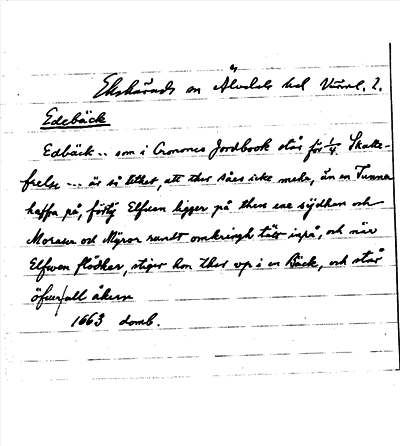 Ekshärads sn Älvdals hd Värml. l.
Edebäck
Edbäck .. som i Cronones Jordbook står för 1/4 Skatte-
frelse --- är så lithet, att ther såes icke mehr, än en Tunna
haffra på, förty Elfwen ligger på then ene sijdhan och
Morasar och Myror rundt omkringh tätt inpå, och när
Elfwen flödher, stiger hon ther up i en Bäck, och står
öfwer all åkern
1663 domb.